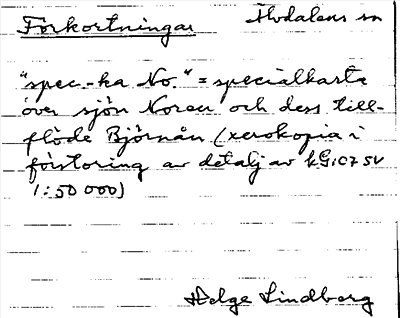 Förkortningar Hodalens sn
"spec.-ka No." = specialkarta
över sjön Noren och dess till-
flöde Björnån (xerokopia i
förstoring av detalj av kG:07 SV
1:50 000)
Helge Lindberg